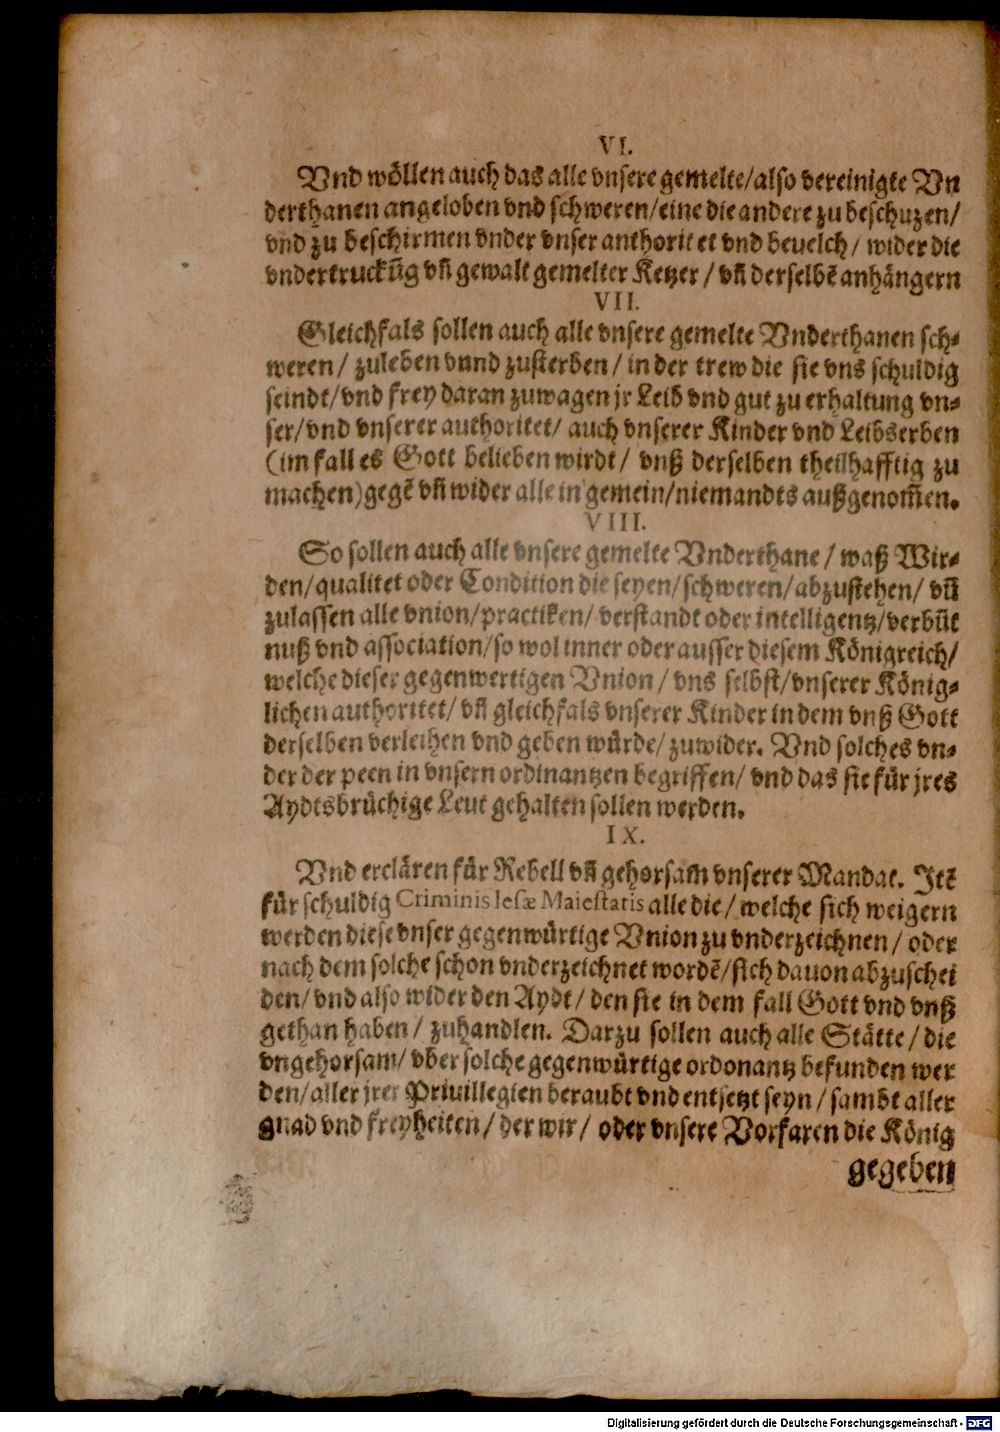 VI.
Vnd wöllen auch das alle vnsere gemelte/also vereinigte Vn
derthanen angeloben vnd schweren/eine die andere zu beschuzen/
vnd zu beschirmen vnder vnser anthoritet vnd beuelch/ wider die
vndertruckūg vñ gewalt gemelter Ketzer / vñ derselbē anhängern
VII.
Gleichfals sollen auch alle vnsere gemelte Vnderthanen sch⸗
weren/ zuleben vnnd zusterben/ in der trew die sie vns schuldig
seindt/vnd frey daran zuwagen jr Leib vnd gut zu erhaltung vn⸗
ser/vnd vnserer authoritet/ auch vnserer Kinder vnd Leibserben
(im fall es Gott belieben wirdt/ vnß derselben theilhafftig zu
machen)gegē vñ wider alle in gemein/niemandts außgenom̃en.
VIII.
So sollen auch alle vnsere gemelte Vnderthane / waß Wir⸗
den/qualitet oder Condition die seyen/schweren/abzustehen/ vñ
zulassen alle vnion/practiken/ verstandt oder intelligentz/verbūt
nuß vnd association/so wol inner oder ausser diesem Königreich/
welche dieser gegenwertigen Vnion/ vns selbst/vnserer König⸗
lichen authoritet/ vñ gleichfals vnserer Kinder in dem vnß Gott
derselben verleihen vnd geben würde/ zuwider. Vnd solches vn⸗
der der peen in vnsern ordinantzen begriffen/ vnd das sie für jres
Aydtsbrüchige Leut gehalten sollen werden.
IX.
Vnd erclären für Rebell vñ gehorsam vnserer Mandat. Itē
für schuldig Criminis lesæ Maiestatis alle die/ welche sich weigern
werden diese vnser gegenwürtige Vnion zu vnderzeichnen/ oder
nach dem solche schon vnderzeichnet wordē/sich dauon abzuschei
den/vnd also wider den Aydt/ den sie in dem fall Gott vnd vnß
gethan haben/ zuhandlen. Darzu sollen auch alle Stätte/ die
vngehorsam/ vber solche gegenwürtige ordonantz befunden wer
den/aller jrer Priuillegien beraubt vnd entsetzt seyn/ sambt aller
gnad vnd freyheiten/ der wir/ oder vnsere Vorfaren die König
gegeben
Digitalisierung gefördert durch die Deutsche Forschungsgemeinschaft - DFG